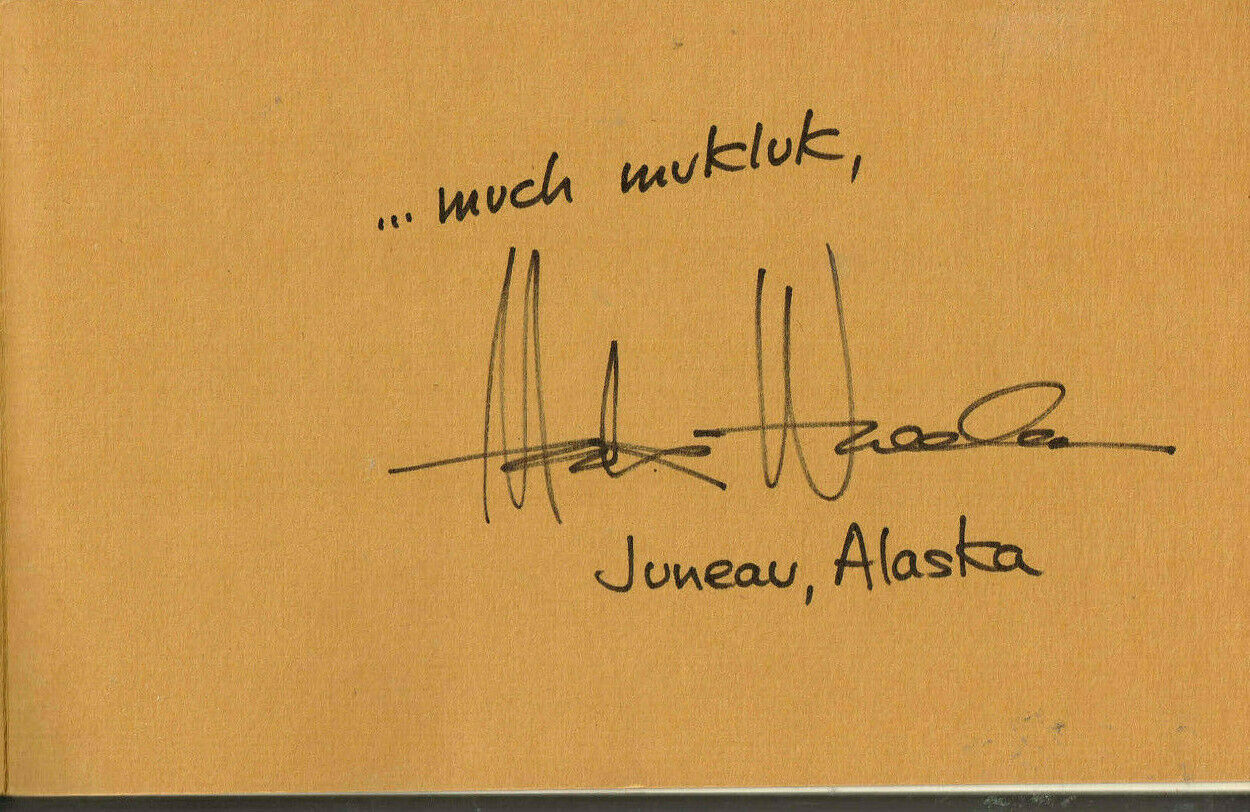 ... much mukluk,
Juneau, Alaska